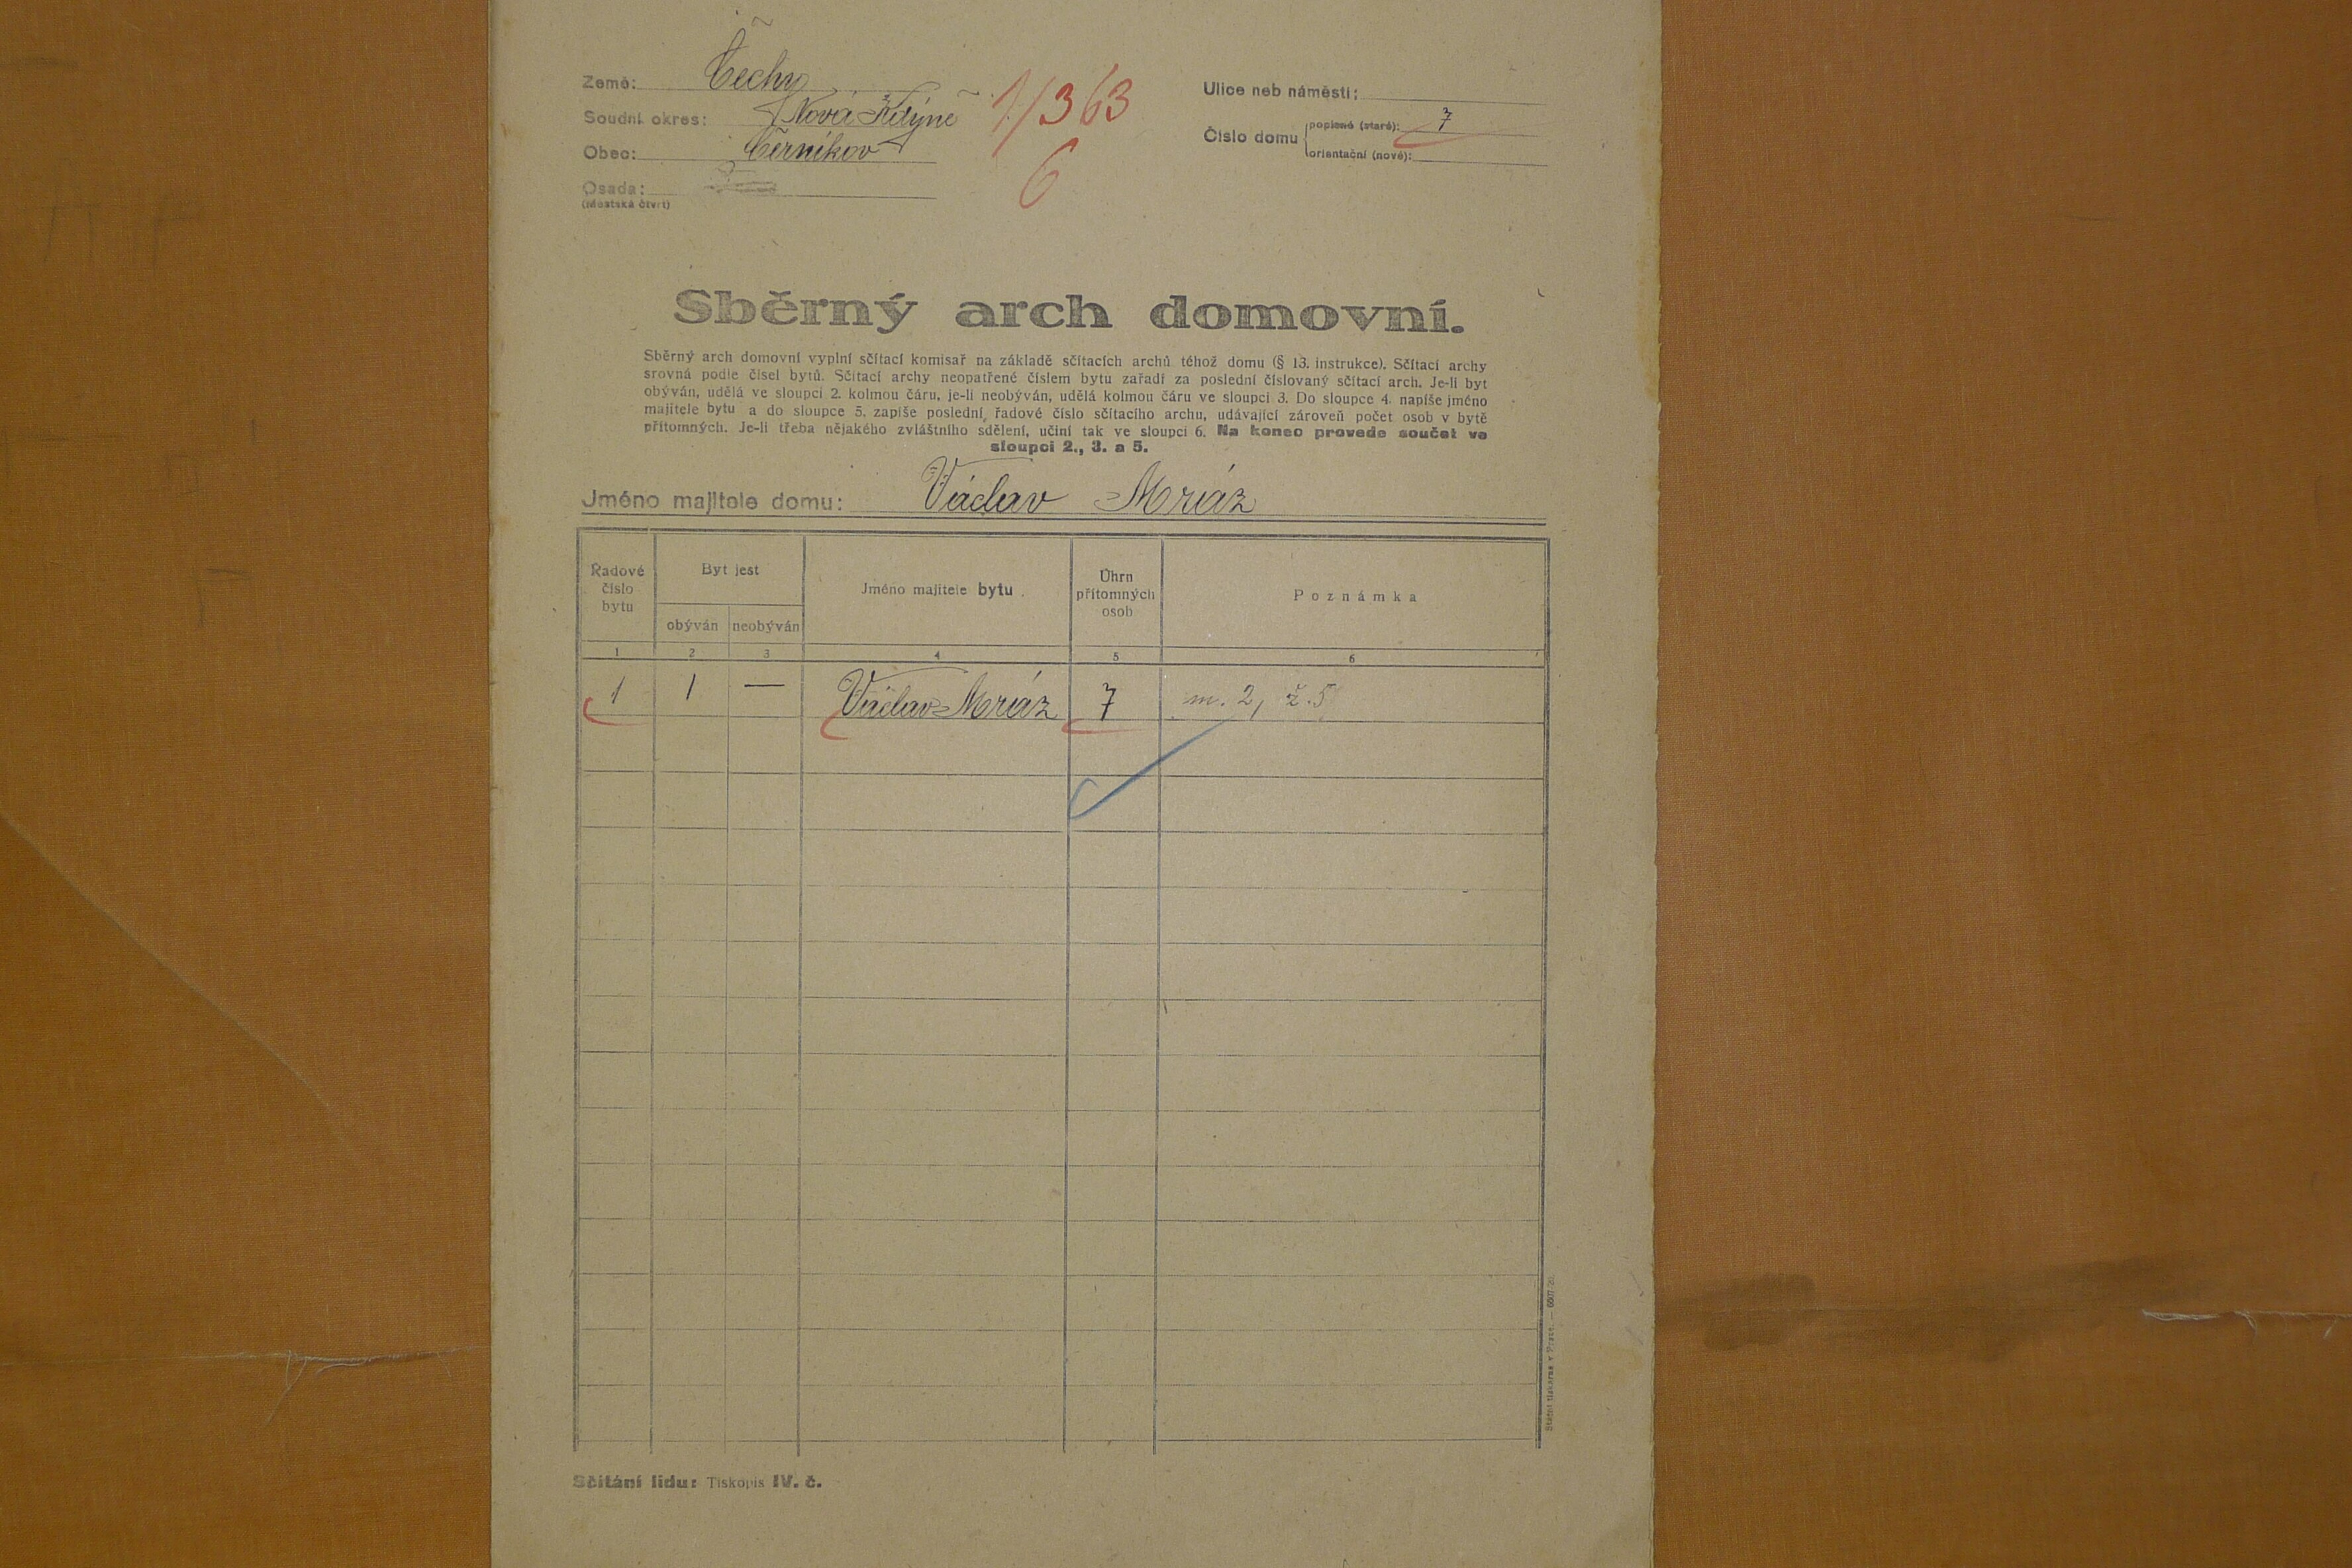 Země: Čechy
Soudní okres: Nová Kdýně
Obec: Černíkov
Osada:
(Městská čtvrť)
1/363
6
Ulice neb náměstí:
Číslo domu
popisné (staré): 7
orientační (nové):
Sběrný arch domovní.
Sběrný arch domovní vyplní sčítací komisař na základě sčítacích archů téhož domu (§ 13. instrukce). Sčítací archy
srovná podle čísel bytů. Sčítací archy neopatřené číslem bytu zařadí za poslední číslovaný sčítací arch. Je-li byt
obýván, udělá ve sloupci 2. kolmou čáru, je-li neobýván, udělá kolmou čáru ve sloupci 3. Do sloupce 4. napíše jméno
majitele bytu a do sloupce 5. zapíše poslední řadové číslo sčítacího archu, udávající zároveň počet osob v bytě
přítomných. Je-li třeba nějakého zvláštního sdělení, učiní tak ve sloupci 6. Na konec provede součet ve
sloupci 2., 3. a 5.
Jméno majitele domu: Václav Mráz
Řadové číslo bytu
Byt jest
obýván
neobýván
Jméno majitele bytu
Úhrn přítomných osob
Poznámka
1 2 3 4 5 6
1 1 — Václav Mráz 7 m. 2, ž. 5
Sčítání lidu: Tiskopis IV. č.
Státní tiskárna v Praze.